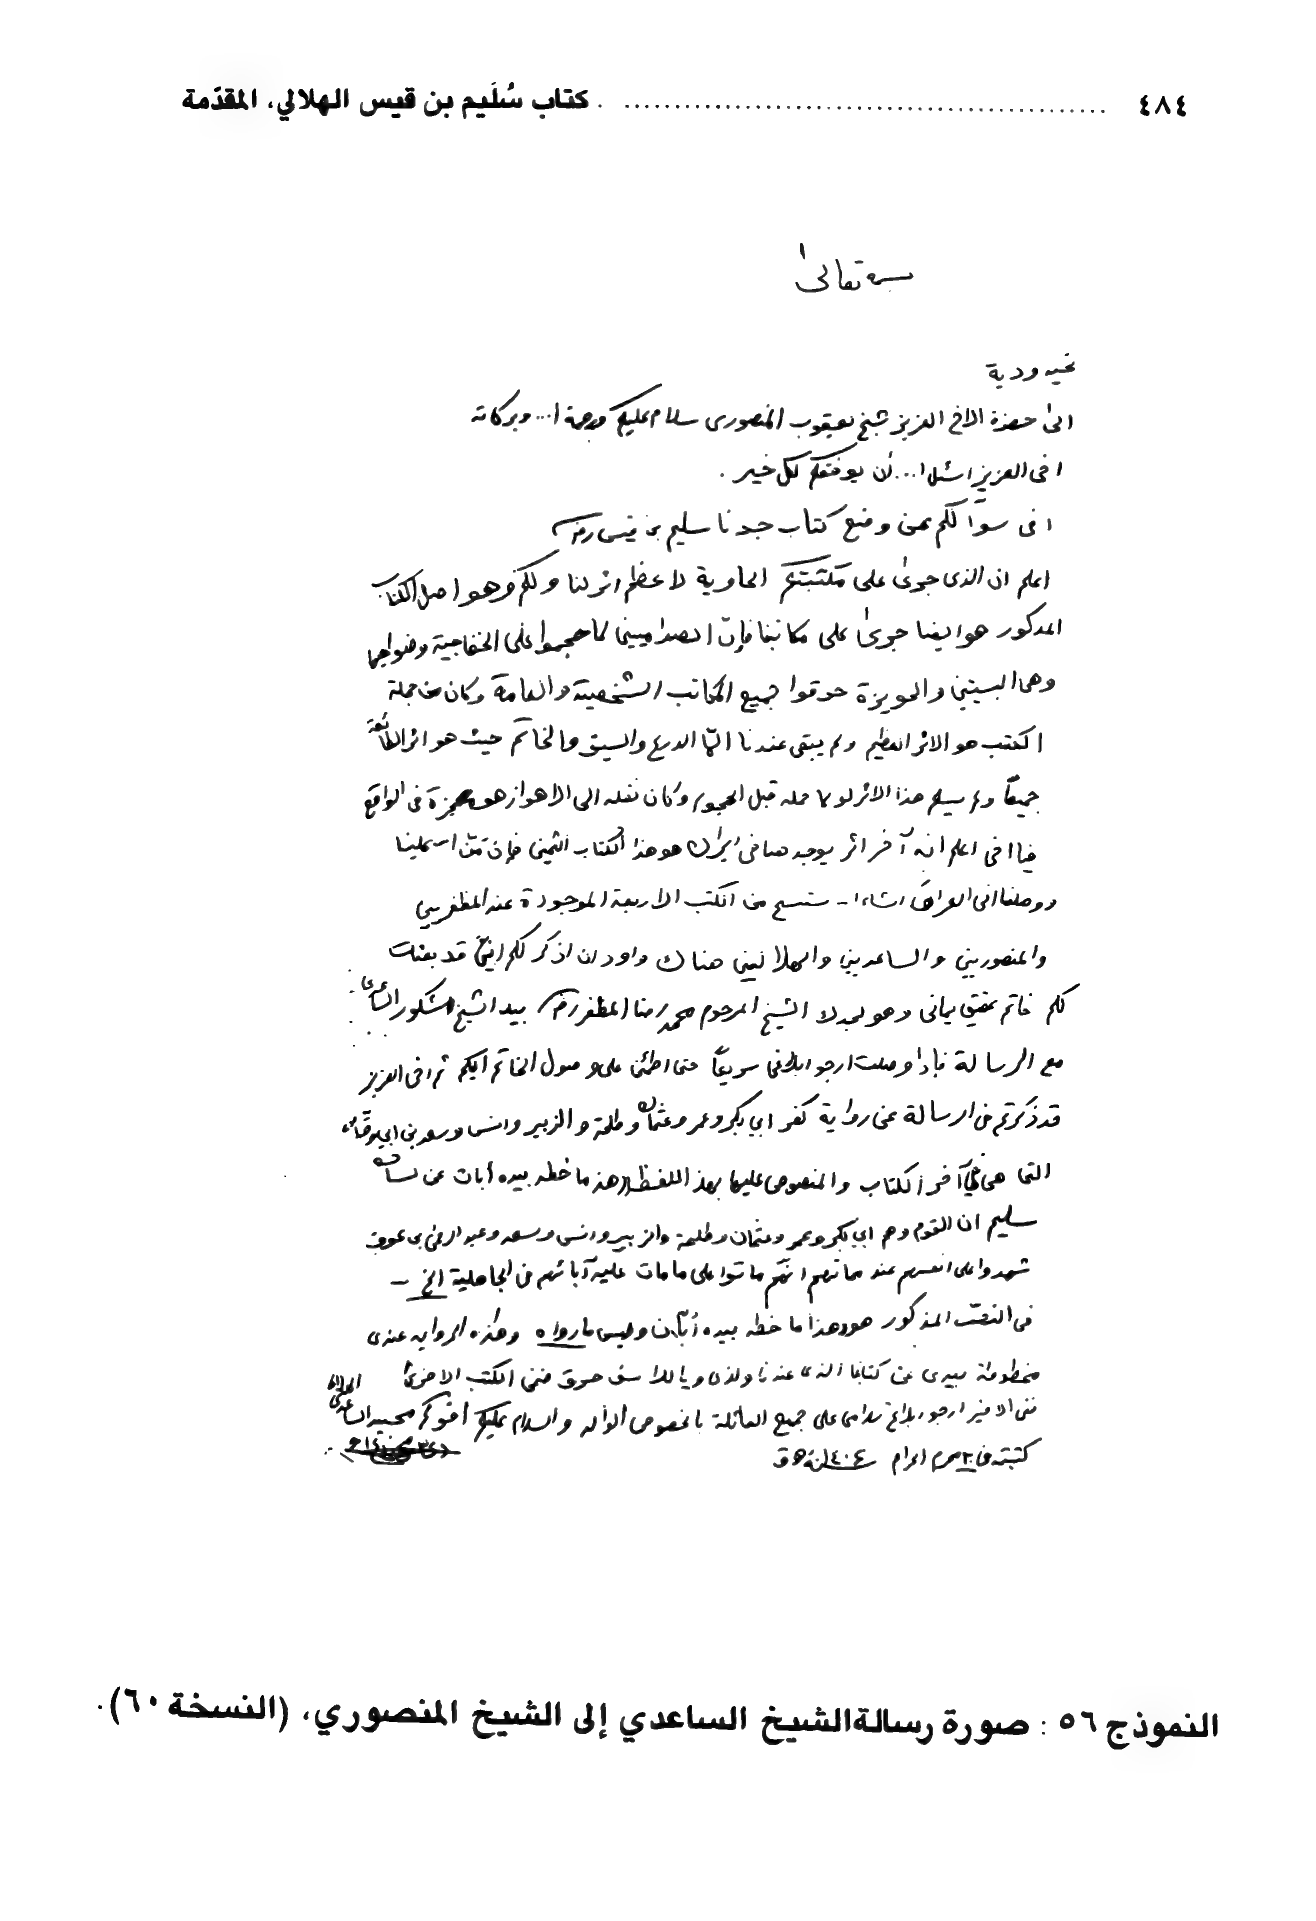 ٤٨٤ ................ كتاب سُلَيم بن قيس الهلالي، المقدّمة
بسمه تعالىٰ
تحيه ودية
الىٰ حضرة الاخ العزيز شيخ يعقوب المنصورى سلام عليكم ورحمة ا... وبركاته
اخى العزيز اسئل ا... أن يوفقكم لكل خير .
اخى سوآلكم عن وضع كتاب جدنا سليم بن قيس رض
اعلم ان الذى جرىٰ على مكتبتكم الحاوية لاعظم اثر لنا ولكم وهو اصل الكتاب
المذكور هو ايضا جرىٰ على مكاتبنا فإنّ الصداميين لما هجموا على الخفاجية وضواحيها
وهى البسيتين والحويزة حرقوا جميع المكاتب الشخصية والعامة وكان من جملة
الكتب هو الاثر العظيم ولم يبقى عندنا الّا الدرع والسيق والخاتم حيث هو اثر الطائفة
جميعًا ولم يسلم هذا الاثر لولا حمله قبل الهجوم وكان نقله الى الاهواز هو معجزة فى الواقع
فيا اخى اعلم انه آخر اثر يوجد هنا فى ايران هو هذا الكتاب الثمين فإن منّ ا- علينا
ووصلنا الى العراق انشاء ا- سننسخ من الكتب الاربعة الموجودة عند المظفريين
والمنصوريين والساعديين والهلاليين هناك واود ان اذكر لكم انى قد بعثت
لكم خاتم عقيق يمانى وهو لجدك الشيخ المرحوم محمد رضا المظفر رض بيد الشيخ شكور الساعدى
مع الرسالة فإذا وصلت ارجو ابلاغى سريعًا حتى اطئن على وصول الخاتم اليكم ثم اخى العزيز
قد ذكرتم فى الرسالة عن رواية كفر ابي بكر وعمر وعثمان وطلحة والزبير وانس وسعد بن ابي وقاص
التى هى فى آخر الكتاب والمنصوص عليها بهذ اللفظ (هذ ما خطه بيده أبان عن لسانه
سليم ان القوم وهم ابي بكر وعمر وعثمان وطلحة والزبير وانس وسعد وعبد الرحمن بن عوف
شهدوا على انفسهم عند مماتهم انهم ماتوا على ما مات عليه آبائهم فى الجاهلية الخ -
فى النصّ المذكور هو هذا ما خطه بيده أبان وليس ما رواه وهذه الروايه عندى
مخطوطة بيدى عن كتابنا الذى عندنا ولكن ويا للاسف حرق ضمن الكتب الاخرىٰ
ففى الاخير ارجو ابلاغ سلامى على جميع العائلة بالخصوص الوالد والسلام عليكم اخوكم محمد الساعدى الهلالى
كتبته فى ٢٠ محرم الحرام سنة ١٤٠٤ هـ ق
النموذج ٥٦ : صورة رسالة الشيخ الساعدي إلى الشيخ المنصوري، (النسخة ٦٠).